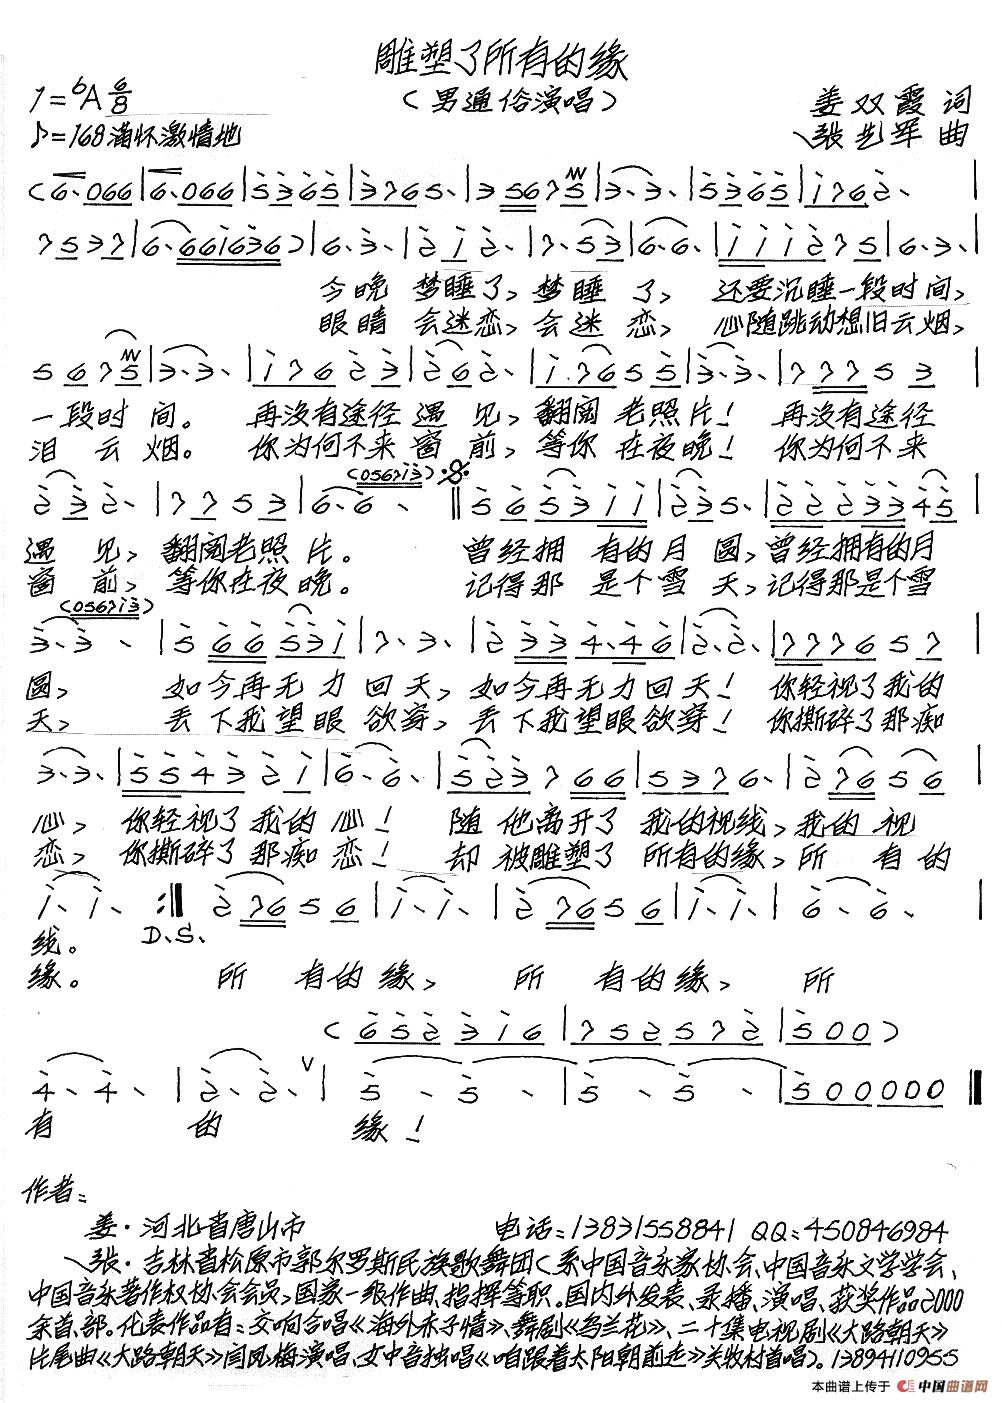 雕塑了所有的缘
1=bA 6/8
（男通俗演唱）
姜双霞 词
♪=168满怀激情地
张艺军 曲
今晚 梦睡了，梦睡 了， 还要沉睡一段时间，
眼睛 会迷恋，会迷 恋， 心随跳动想旧云烟，
一段时 间。 再没有途径 遇 见，翻阅 老照片！ 再没有途径
泪 云 烟。 你为何不来 窗 前，等你 在夜晚！ 你为何不来
(0567i3)
遇 见，翻阅老照 片。 曾经拥 有的月 圆，曾经拥有的月
窗 前，等你在夜 晚。 记得那 是个雪 天，记得那是个雪
(0567i3)
圆， 如今再无力 回 天，如今再无力 回 天！ 你轻视了我的
天， 丢下我望眼 欲穿，丢下我望眼欲穿！ 你撕碎了那痴
心，你轻视了 我的 心！ 随 他离开了 我的视线，我的 视
恋，你撕碎了 那痴 恋！ 却 被雕塑了 所有的缘，所 有的
D.S.
线。
缘。 所 有的缘， 所 有的缘， 所
有 的 缘！
作者：
姜·河北省唐山市 电话：13831558841 QQ：450846984
张·吉林省松原市郭尔罗斯民族歌舞团（系中国音乐家协会、中国音乐文学学会、
中国音乐著作权协会会员，国家一级作曲、指挥等职。国内外发表、录播、演唱、获奖作品2000
余首、部。代表作品有：交响合唱《海外赤子情》、舞剧《乌兰花》、二十集电视剧《大路朝天》
片尾曲《大路朝天》闫凤梅演唱、女中音独唱《咱跟着太阳朝前走》关牧村首唱）。13894110955
本曲谱上传于 中国曲谱网